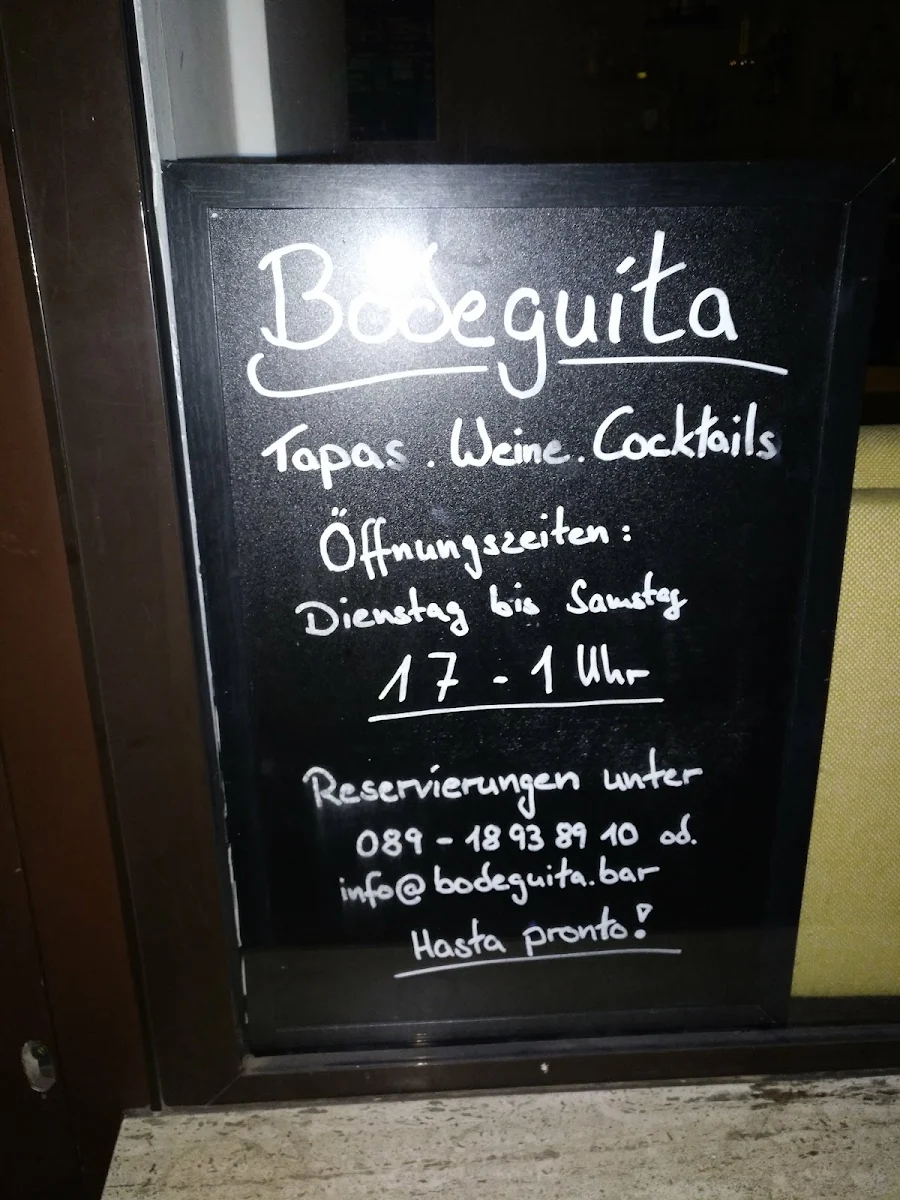 Bodeguita
Tapas . Weine . Cocktails
Öffnungszeiten :
Dienstag bis Samstag
17 - 1 Uhr
Reservierungen unter
089 - 18 93 89 10 od.
info@bodeguita.bar
Hasta pronto!